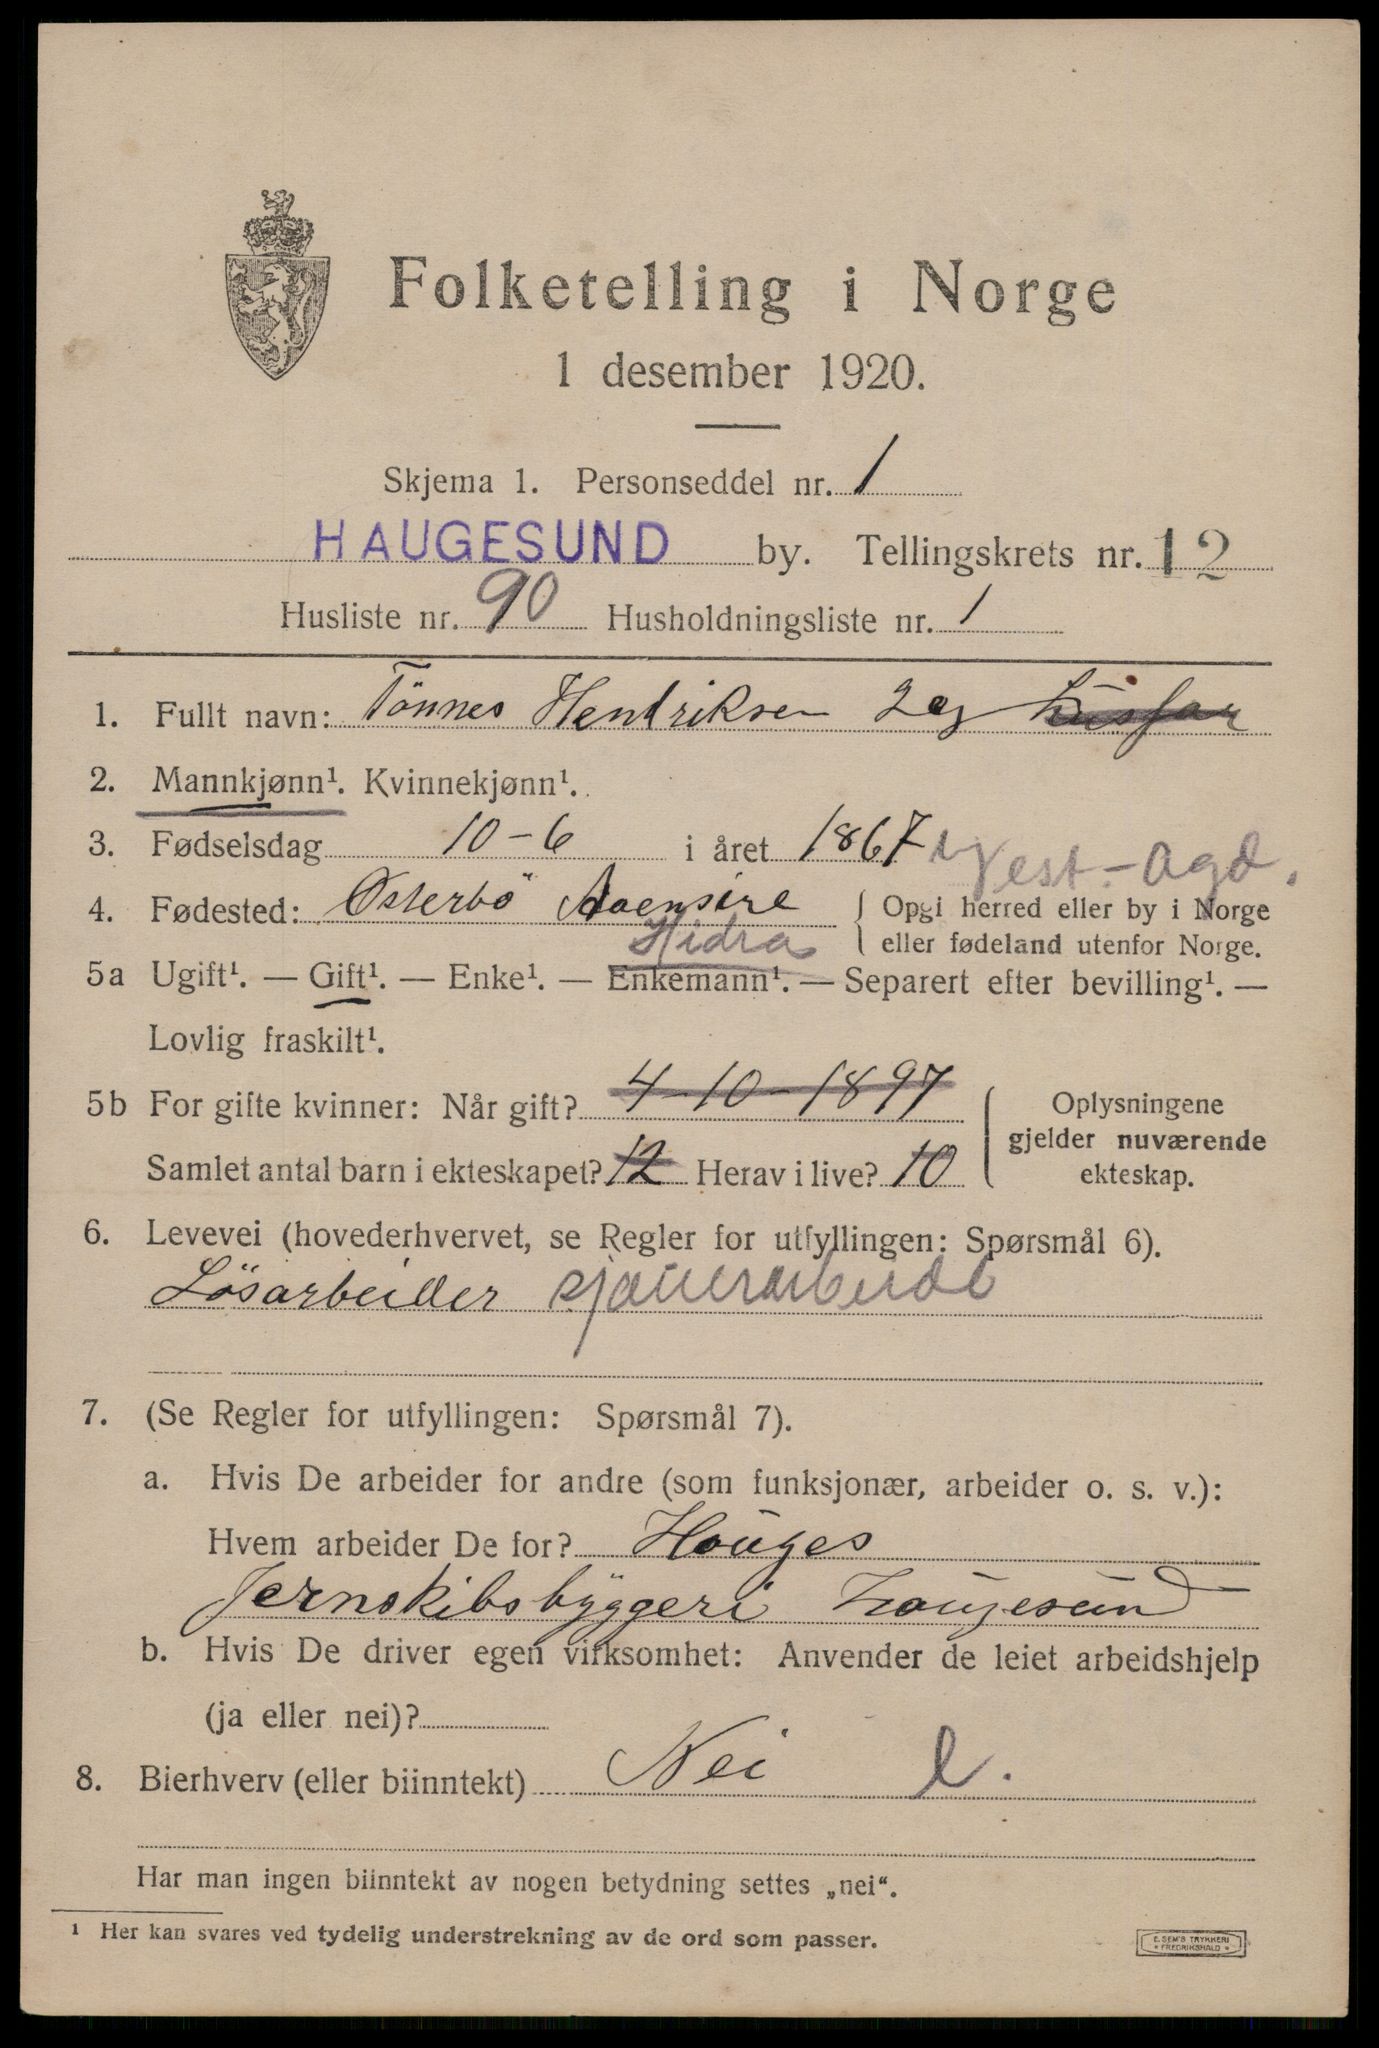 Folketelling i Norge
1 desember 1920.
Skjema 1. Personseddel nr. 1
HAUGESUND by. Tellingskrets nr. 12
Husliste nr. 90 Husholdningsliste nr. 1
1. Fullt navn: Tönnes Hendriksen
2. Mannkjønn¹. Kvinnekjønn¹.
3. Fødselsdag 10-6 i året 1867
Vest-Agd.
4. Fødested: Østerbö Aaensire { Opgi herred eller by i Norge
Hidra eller fødeland utenfor Norge.
5a Ugift¹. — Gift¹. — Enke¹. — Enkemann¹. — Separert efter bevilling¹. —
Lovlig fraskilt¹.
5b For gifte kvinner: Når gift? 4-10-1897 { Oplysningene
gjelder nuværende
Samlet antal barn i ekteskapet? 12 Herav i live? 10 ekteskap.
6. Levevei (hovederhvervet, se Regler for utfyllingen: Spørsmål 6).
Lösarbeider sjauerarbeide
7. (Se Regler for utfyllingen: Spørsmål 7).
a. Hvis De arbeider for andre (som funksjonær, arbeider o. s. v.):
Hvem arbeider De for? Houges
Jernskibsbyggeri Hougesund
b. Hvis De driver egen virksomhet: Anvender de leiet arbeidshjelp
(ja eller nei)?
8. Bierhverv (eller biinntekt) Nei l.
Har man ingen biinntekt av nogen betydning settes „nei“.
¹ Her kan svares ved tydelig understrekning av de ord som passer.
E. SEM'S TRYKKERI
* FREDRIKSHALD *